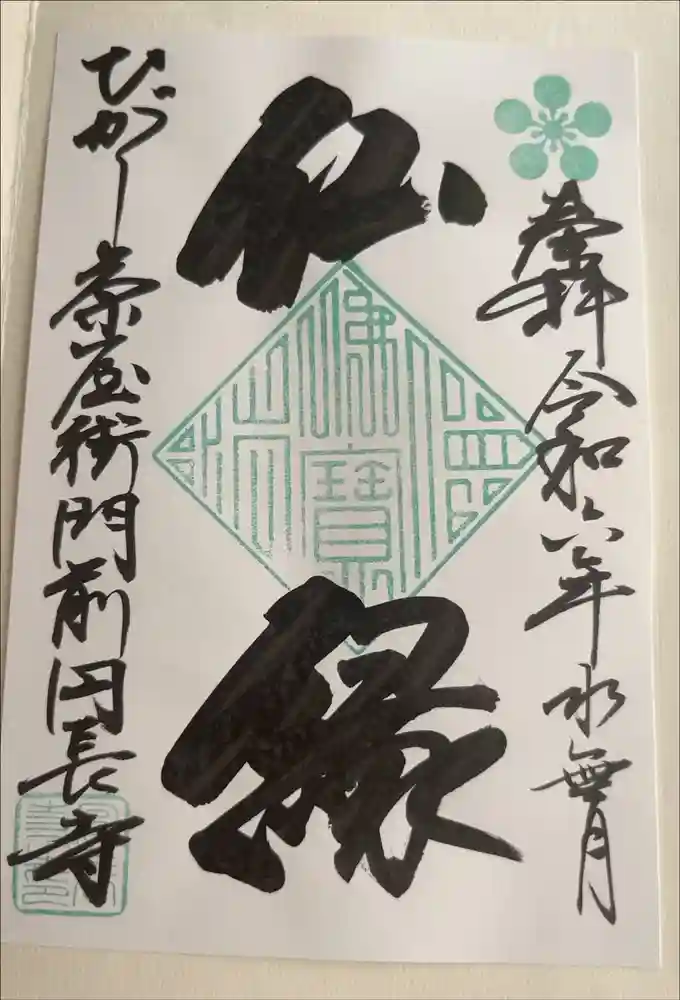 奉拝 令和六年水無月
仏縁
佛法僧寶
ひがし茶屋街門前円長寺